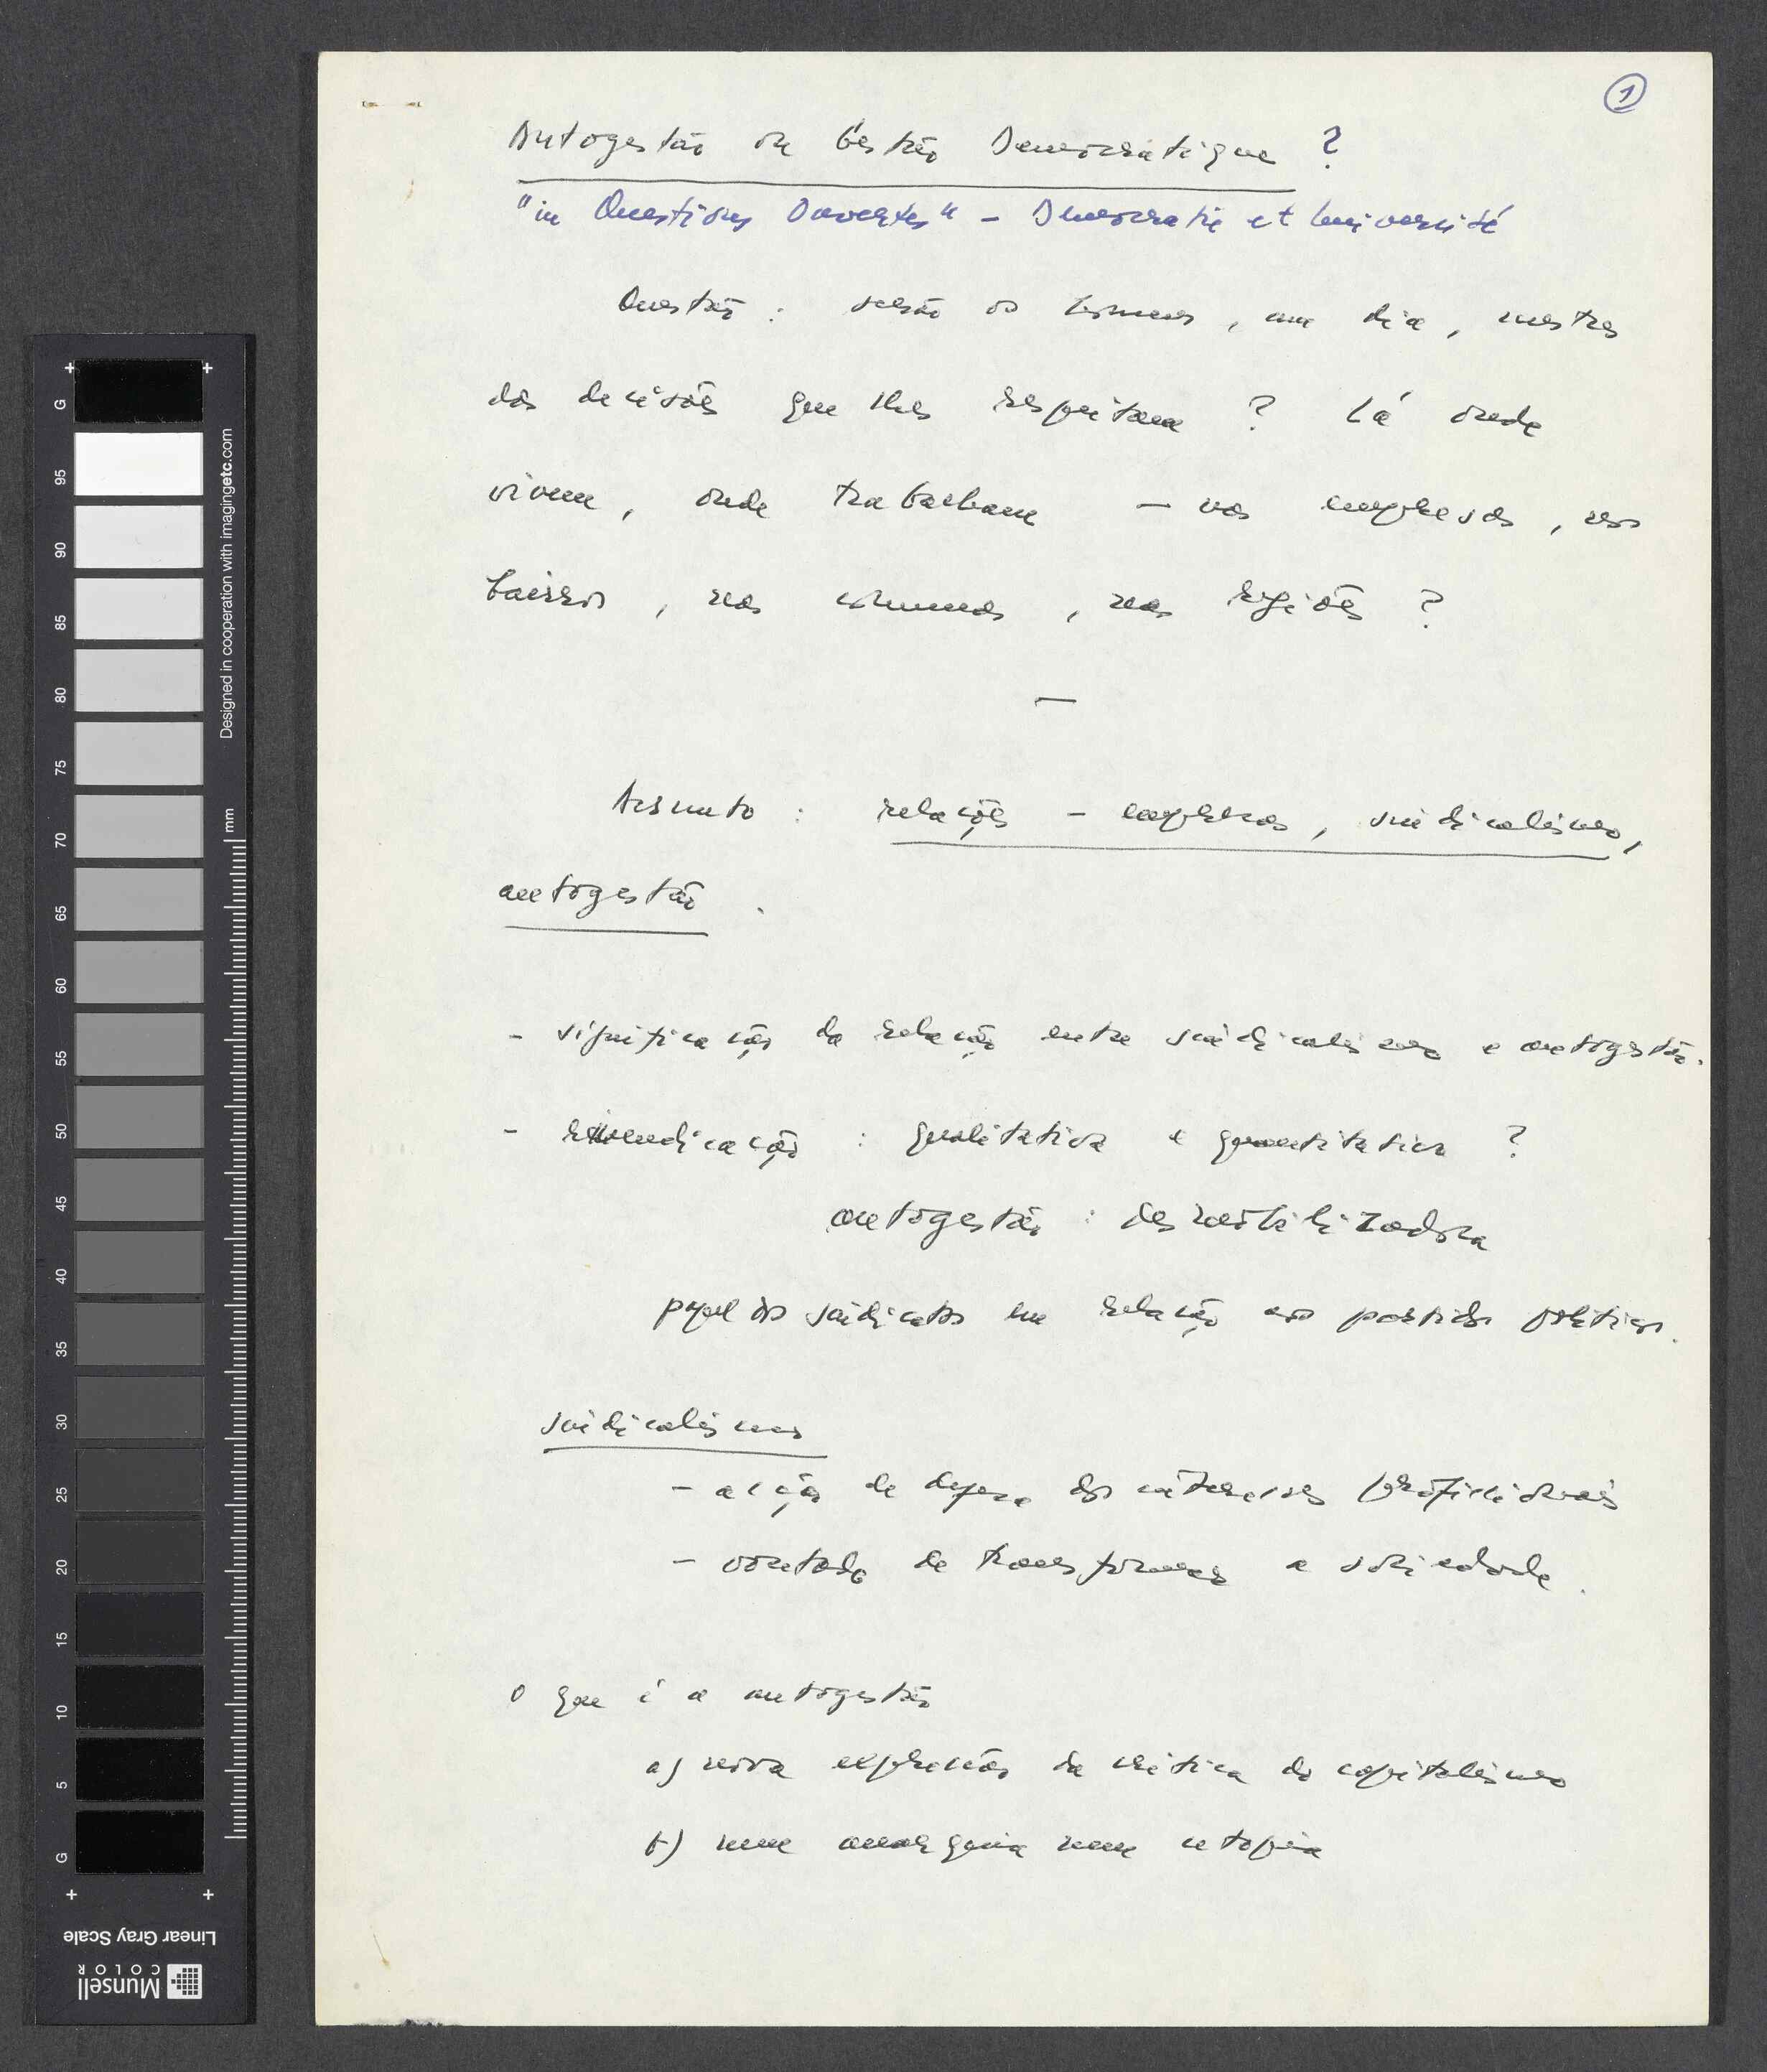 1
Autogestão ou Gestão Democratique ?
"in Questions Ouvertes" – Democratie et Université
Questão : serão os homens, um dia, mestres
das decisões que lhes respeitam ? Lá onde
vivem, onde trabalham – nas empresas, nos
bairros, nas comunas, nas regiões ?
–
Assunto : relações – empresas, sindicalismo,
autogestão.
- significação da relação entre sindicalismo e autogestão.
- reivendicação : qualitativa e quantitativa ?
autogestão : desmobilizadora
papel dos sindicatos em relação aos partidos politicos.
sindicalismo
- acção de defesa dos interesses profissionais
- vontade de transformar a sociedade.
O que é a autogestão
a) nova expressão da critica do capitalismo
b) nem anarquia nem utopia
G
95
90
85
80
75
70
65
60
55
50
45
40
35
30
25
20
15
10
5
G
mm
Designed in cooperation with imagingetc.com
Linear Gray Scale
Munsell
COLOR